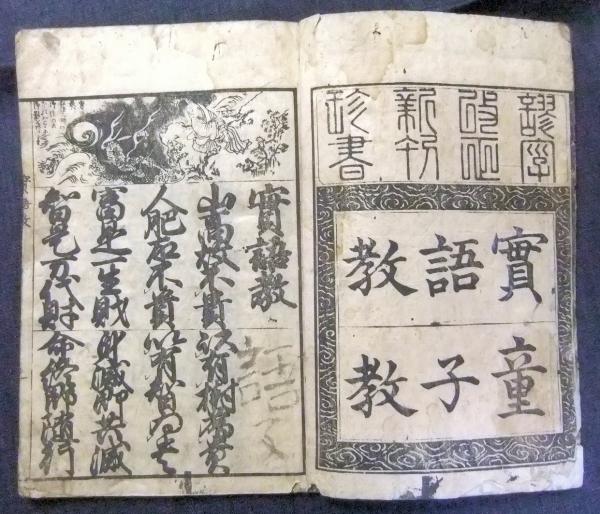 謬字改正新刊珍書
實語教
童子教
實語教
山高故不貴以有樹為貴
人肥故不貴以有智為貴
富是一生財身滅即共滅
智是万代財命終即隨行